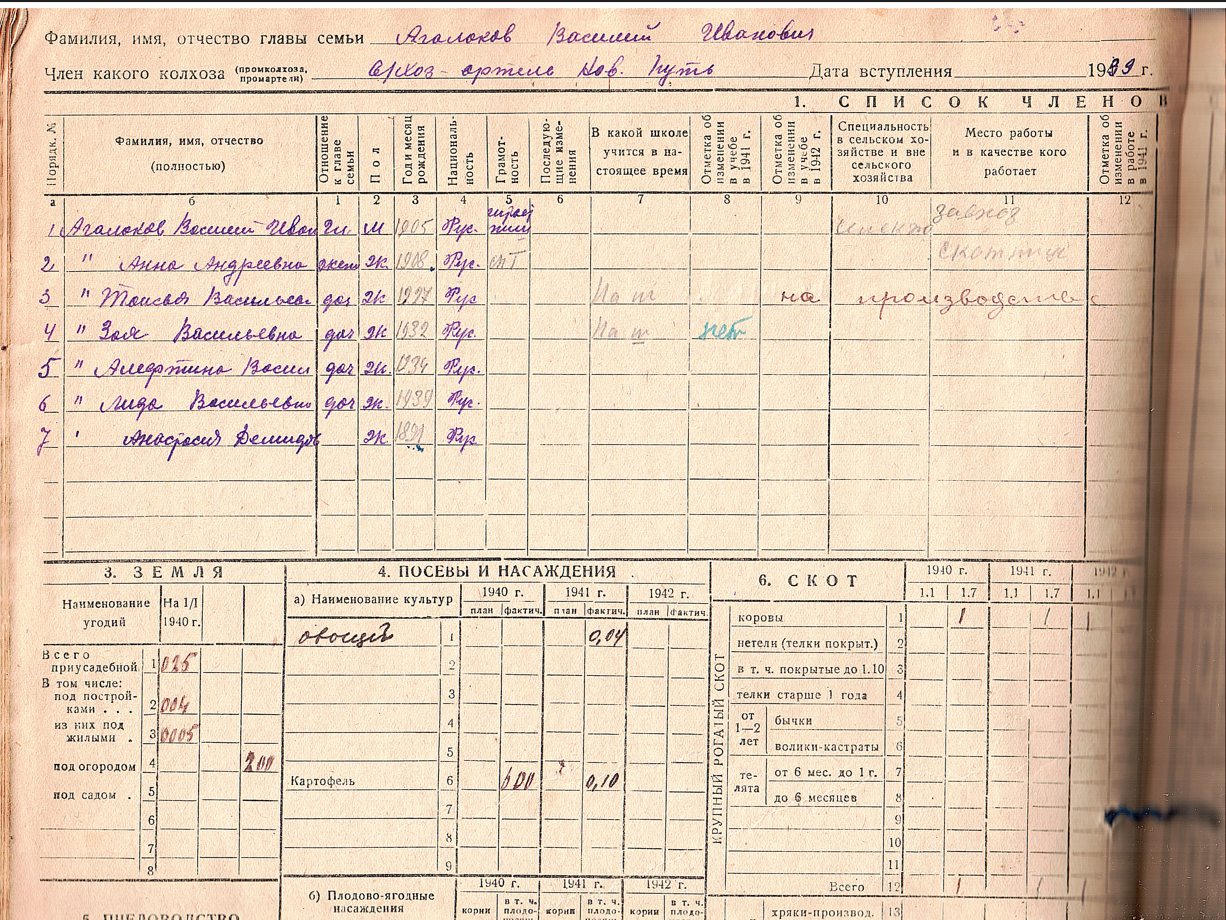 Фамилия, имя, отчество главы семьи Агалаков Василий Иванович
Член какого колхоза (промколхоза, промартели) с/хоз-артель Нов. Путь Дата вступления 1939 г.
1. СПИСОК ЧЛЕНОВ
Порядк. № Фамилия, имя, отчество (полностью) Отношение к главе семьи Пол Год и месяц рождения Националь-ность Грамот-ность Последую-щие изме-нения В какой школе учится в на-стоящее время Отметка об изменении в учебе в 1941 г. Отметка об изменении в учебе в 1942 г. Специальность в сельском хо-зяйстве и вне сельского хозяйства Место работы и в качестве кого работает Отметка об изменении в работе в 1941 г.
а б 1 2 3 4 5 6 7 8 9 10 11 12
завхоз
1 Агалаков Василий Иван Гл. М 1905 Рус.
скотник
2 " Анна Андреевна жена Ж. 1908. Рус.
3 " Таисья Васильев доч Ж 1927 Рус на производстве
4 " Зоя Васильевна доч Ж 1932 Рус. нет
5 " Алефтина Васил доч Ж. 1934 Рус.
6 " Лида Васильевна доч Ж. 1939 Рус.
7 " Анастасия Демидов Ж 1891 Рус
3. ЗЕМЛЯ
Наименование угодий На 1/I 1940 г.
Всего приусадебной 1 025
В том числе:
под построй-ками . . . 2 004
из них под жилыми . 3 0005
под огородом 4 200
под садом . 5
6
7
8
4. ПОСЕВЫ И НАСАЖДЕНИЯ
а) Наименование культур 1940 г. 1941 г. 1942 г.
план фактич. план фактич. план фактич.
овощей 1 0,04
2
3
4
5
Картофель 6 600 0,10
7
8
9
б) Плодово-ягодные насаждения 1940 г. 1941 г. 1942 г.
корни в т. ч. плодо- корни в т. ч. плодо- корни в т. ч. плодо-
6. СКОТ
1940 г. 1941 г. 1942 г.
1.1 1.7 1.1 1.7 1.1
КРУПНЫЙ РОГАТЫЙ СКОТ
коровы 1 1 1
нетели (телки покрыт.) 2
в т. ч. покрытые до 1.10 3
телки старше 1 года 4
от 1—2 лет бычки 5
волики-кастраты 6
те-лята от 6 мес. до 1 г. 7
до 6 месяцев 8
9
10
11
Всего 12 1 1
хряки-производ. 13
5. ПЧЕЛОВОДСТВО